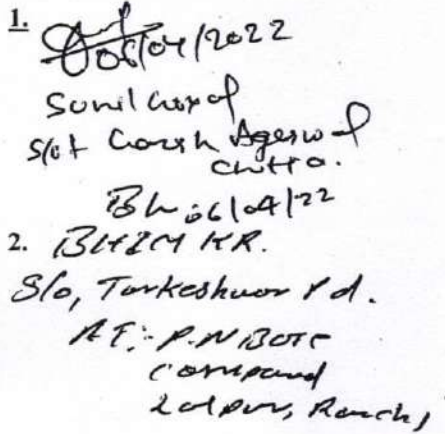 1.
06/04/2022
Sunil
S/o Agerwal
06/04/22
2. BHIM KR.
S/o, Tarkeshwar Pd.
AT:- P.N Bose
compound
Lalpur, Ranchi